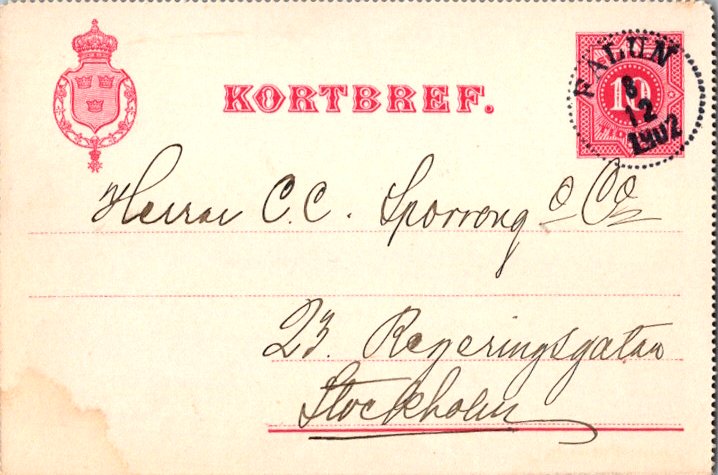 KORTBREF.
10
FALUN
8
12
1902
Herrar C.C. Sporrong & Co
23. Regeringsgatan
Stockholm